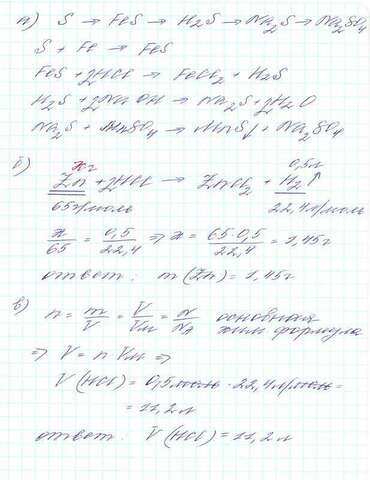 а) S → FeS → H₂S → Na₂S → Na₂SO₄
S + Fe → FeS
FeS + 2HCl → FeCl₂ + H₂S
H₂S + 2NaOH → Na₂S + 2H₂O
Na₂S + MnSO₄ → MnS↓ + Na₂SO₄
б) xг 0,5л
Zn + 2HCl → ZnCl₂ + H₂↑
65г/моль 22,4л/моль
x/65 = 0,5/22,4 ⇒ x = 65·0,5/22,4 = 1,45г
ответ: m(Zn) = 1,45г
в) n = m/V = V/Vм = N/Nа основная хим формула
⇒ V = n Vм ⇒
V(HCl) = 0,5моль · 22,4л/моль =
= 11,2л
ответ: V(HCl) = 11,2л